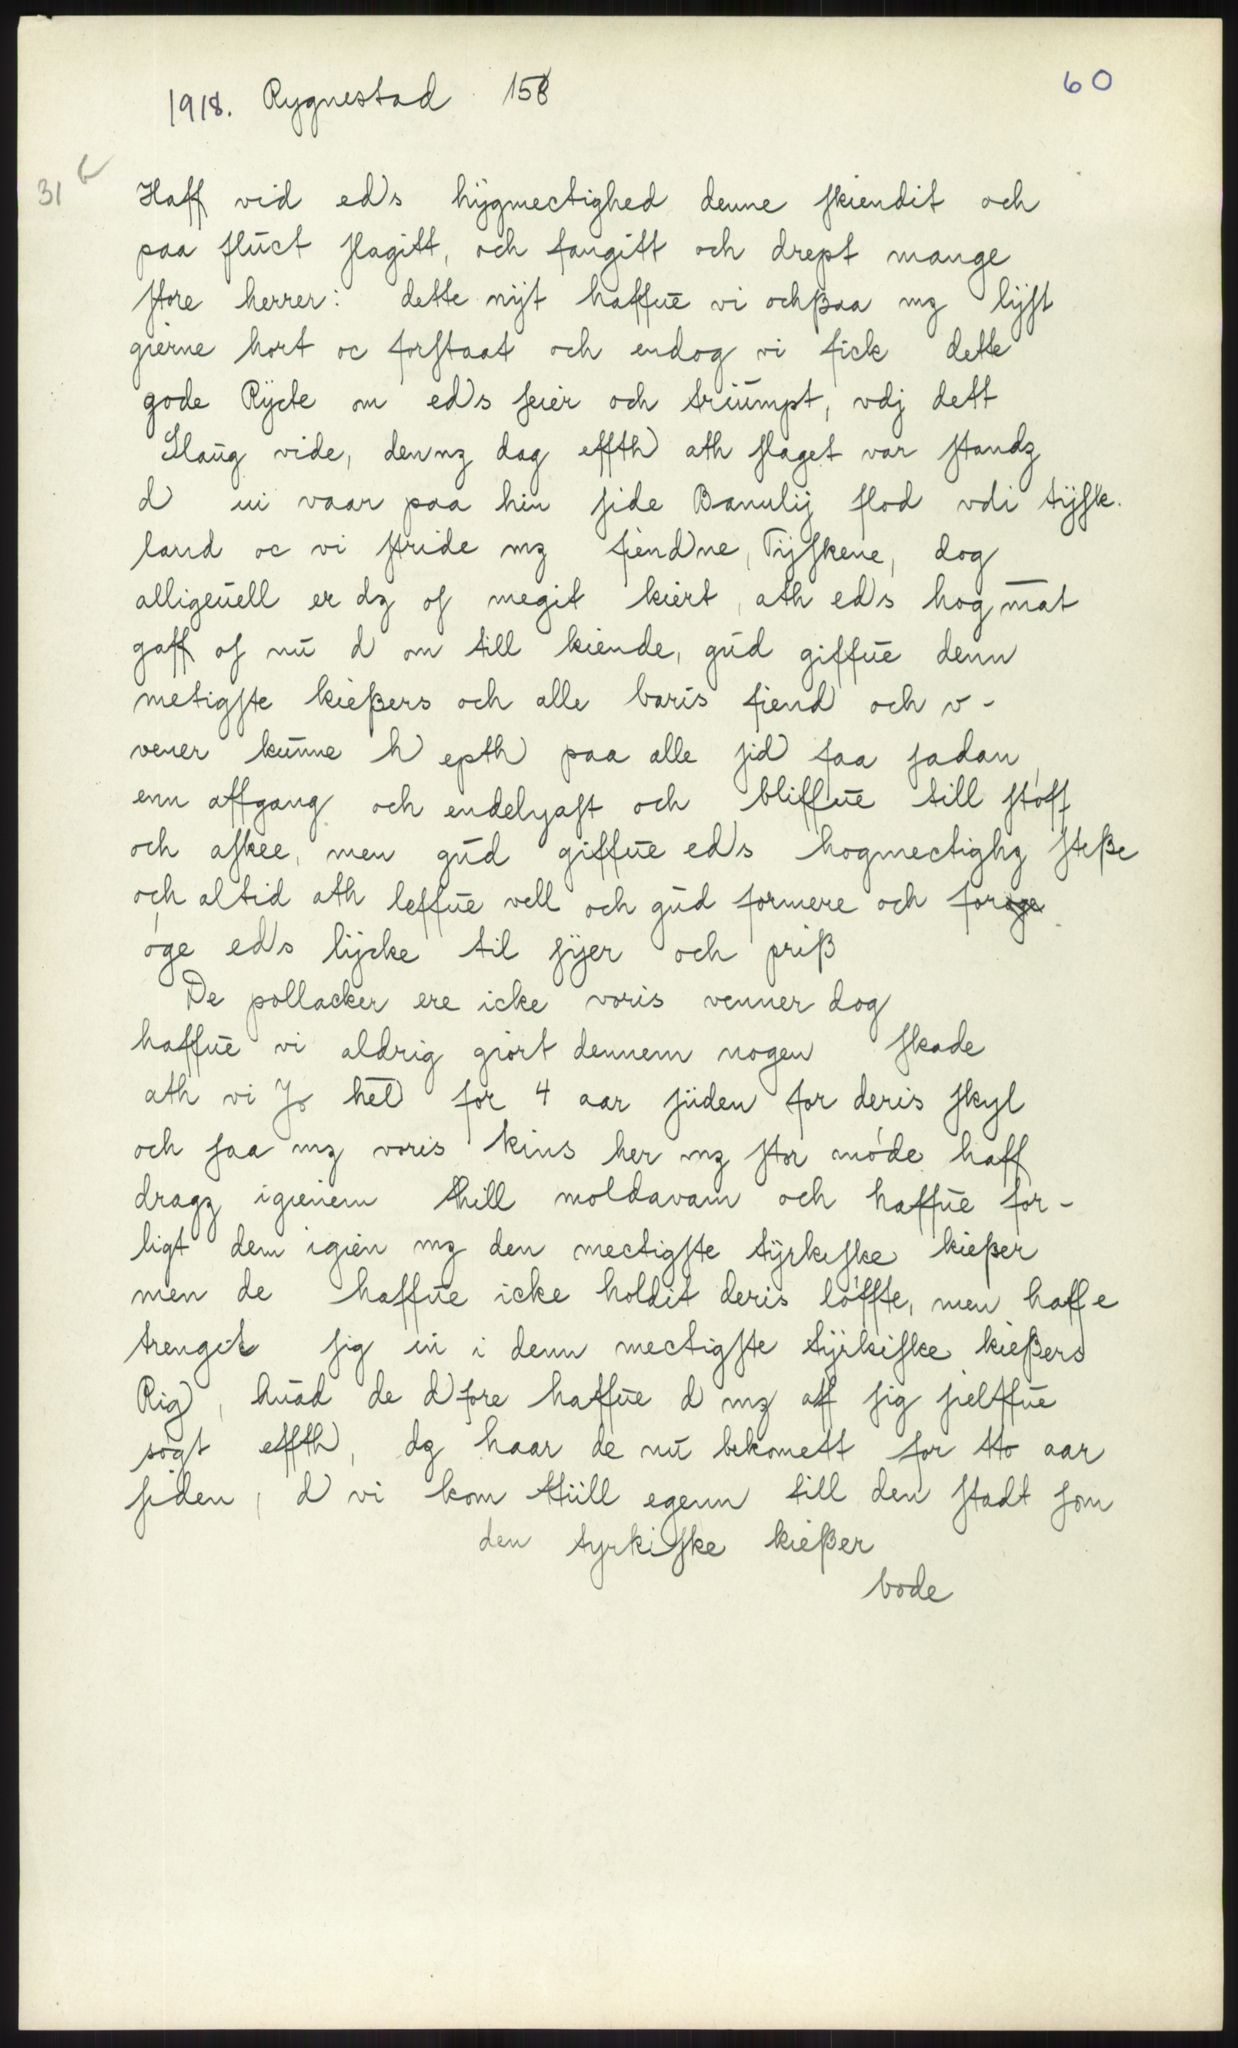 1918. Rygnestad 158
60
31 b
Haff vid eds hÿgmectighed denne skiendit och
paa fluct slagitt, och fangitt och drept mange
store herrer: dette nÿt haffue vi ochßaa mz lÿst
gierne hort oc forstaat och endog vi fick dette
gode Rÿcte om eds seier och triumpt, vdj dett
Slaug vide, dennz dag effth ath slaget var standz
d ui vaar paa hin side Banulij flod vdi tÿsk.
land oc vi stride mz fiendne, Tÿskene, dog
alligeuell er dz os megit kiert, ath eds hogmat
gaff os nu d om till kiende, gud giffue denn
metigste kießers och alle voris fiend och v-
vener kunne h epth paa alle sid faa sadan,
enn affgang och endelyast och bliffue till stóff
och askee, men gud giffue eds hogmectighz steße
och altid ath leffue vell och gud formere och foroge
óge eds lÿcke til sÿer och priß
De pollacker ere icke voris venner dog
haffue vi aldrig giórt dennem nogen skade
ath vi Jo hel for 4 aar siiden for deris skyl
och saa mz voris kins her mz stor móde haff
dragz igienem thill moldavam och haffue for-
ligt dem igien mz den mectigste tÿrkiske kießer
men de haffue icke holdit deris lóffte, men haffe
trengit sig in i denn mectigste tÿrkiske kießers
Rig, huad de dfore haffue d mz aff sig sielffue
sógt effth, dz haar de nu bekomett for tto aar
siden, d vi kom ttiill egenn till den stadt som
den tyrkiske kießer
bode